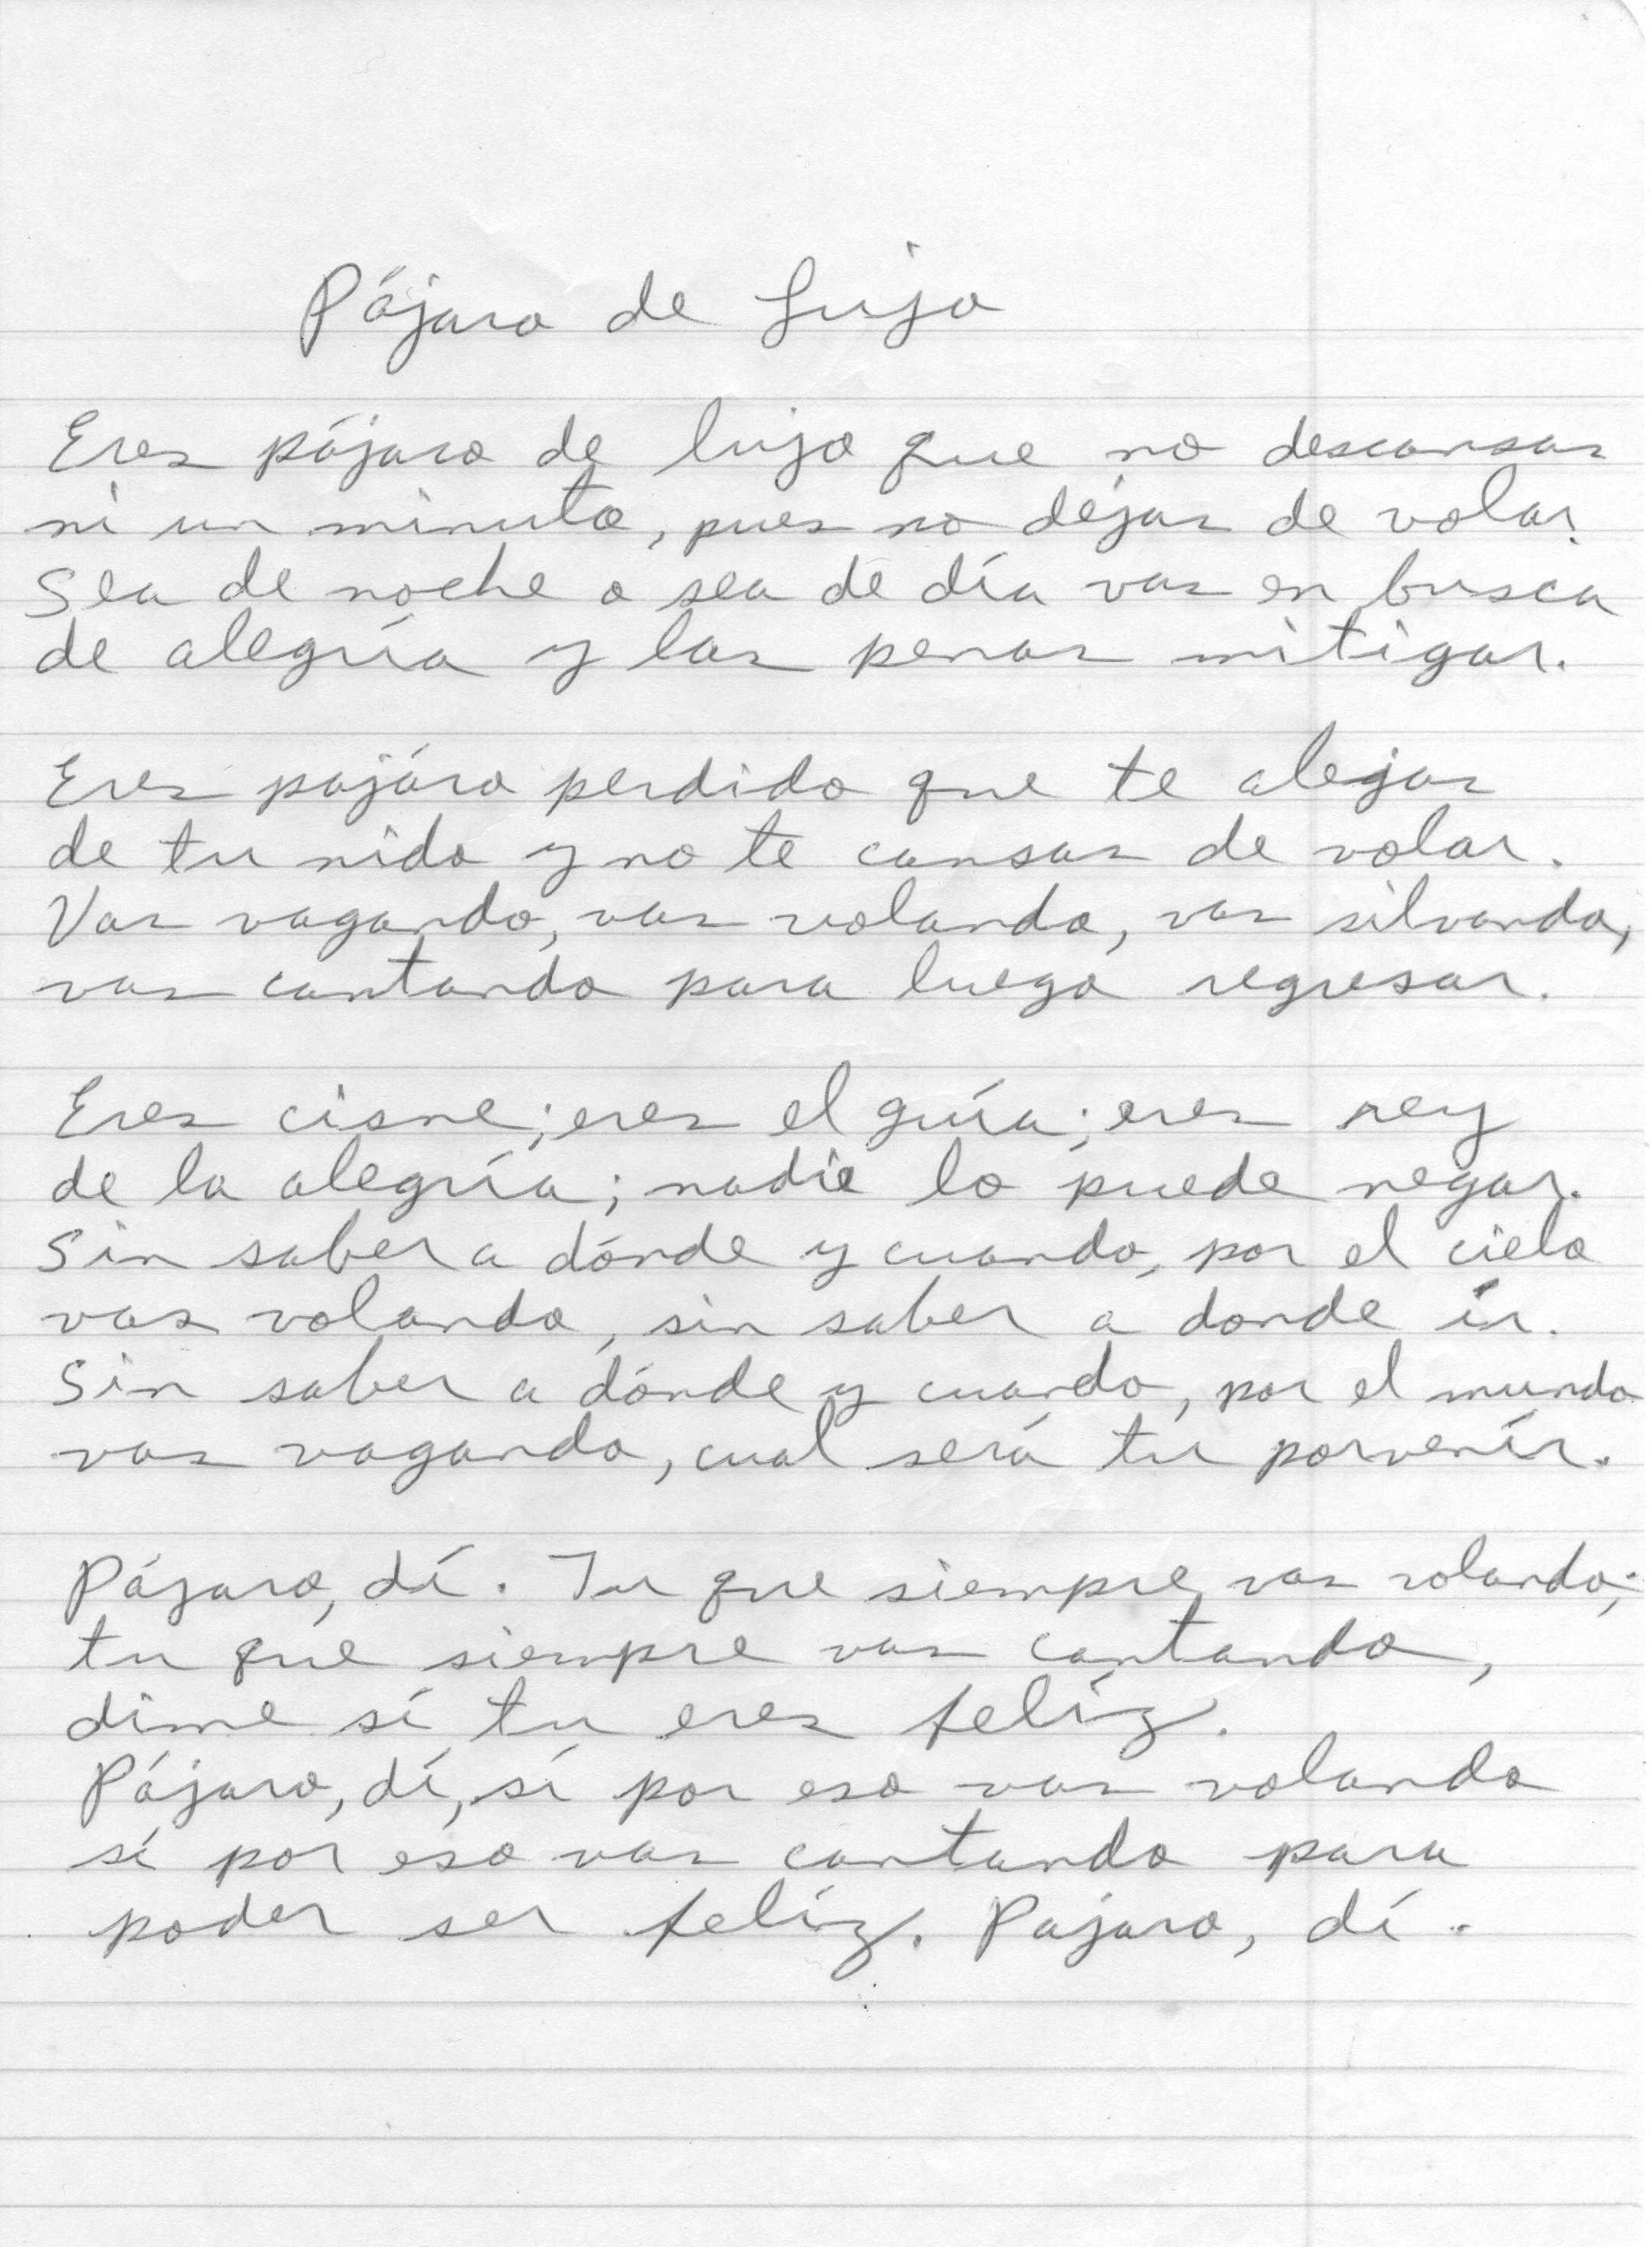 Pájaro de Lujo
Eres pájaro de lujo que no descansas
ni un minuto, pues no dejas de volar.
Sea de noche o sea de día vas en busca
de alegría y las penas mitigar.
Eres pajáro perdido que te alejas
de tu nido y no te cansas de volar.
Vas vagando, vas volando, vas silvando,
vas cantando para luego regresar.
Eres cisne; eres el guía; eres rey
de la alegría; nadie lo puede negar.
Sin saber a dónde y cuando, por el cielo
vas volando, sin saber a donde ir.
Sin saber a dónde y cuando, por el mundo
vas vagando, cual será tu porvenír.
Pájaro, dí. Tu que siempre vas volando;
tu que siempre vas cantando,
dime sí tu eres felíz.
Pájaro, dí, sí por eso vas volando
sí por eso vas cantando para
poder ser felíz. Pajaro, dí.